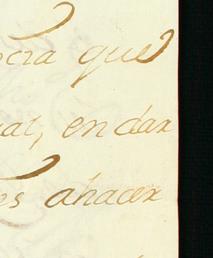 ocia que
at, en dar
es ahacer